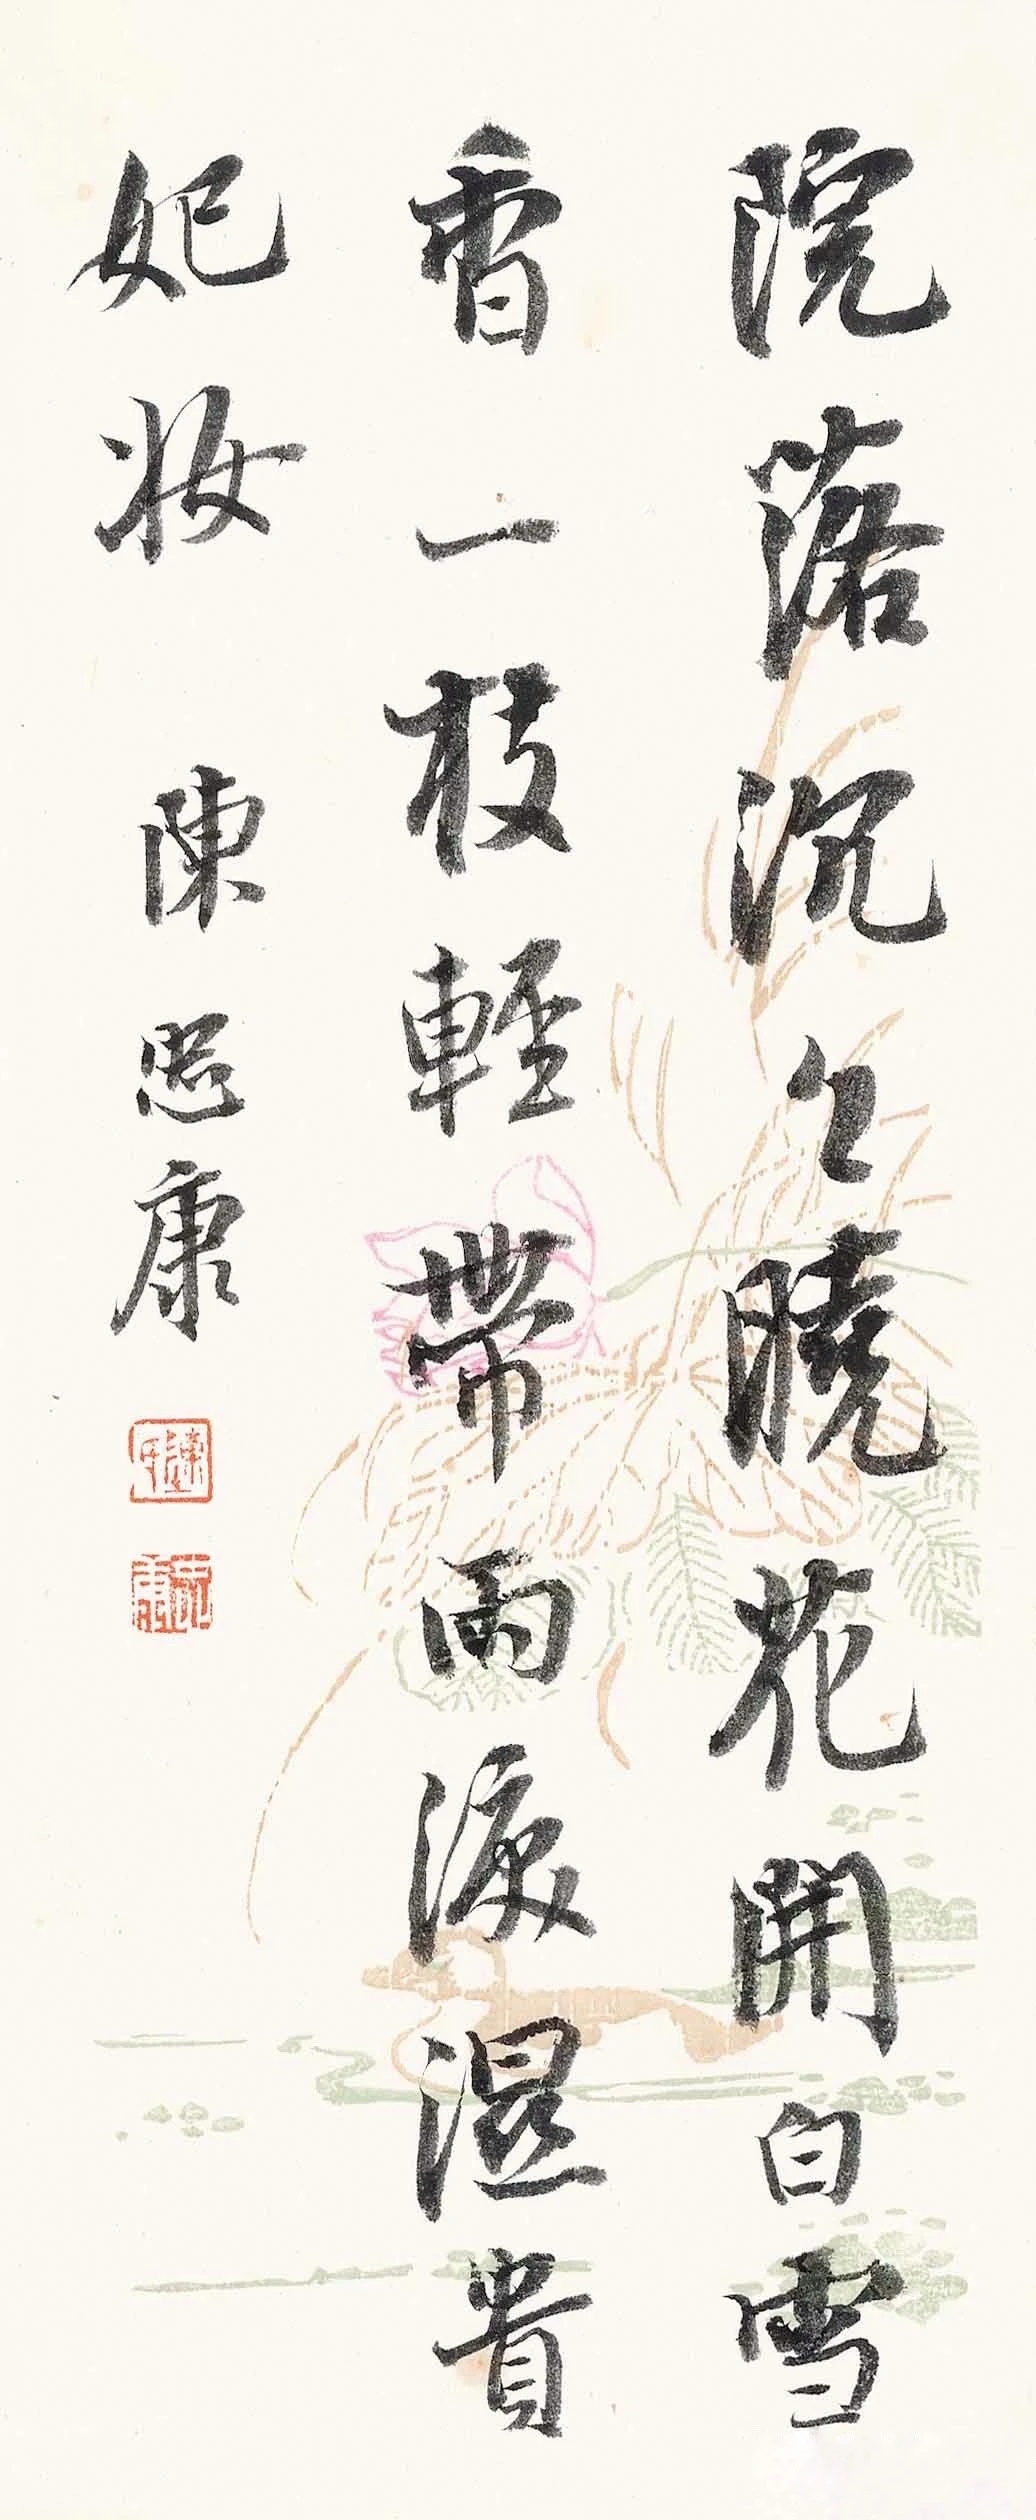 院落沉々曉花開白雪
香一枝輕帶雨淚濕貴
妃妝 陳思康